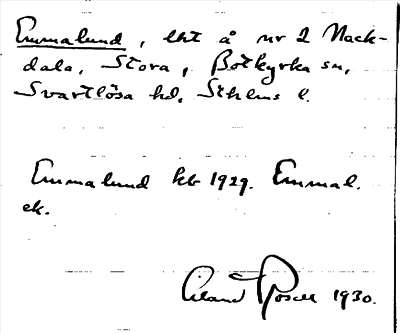 Emmalund, lht å nr 2 Nack-
dala, Stora, Botkyrka sn,
Svartlösa hd, Sthlms l.
Emmalund kb 1929. Emmal.
ek.
Erland Rosell 1930.